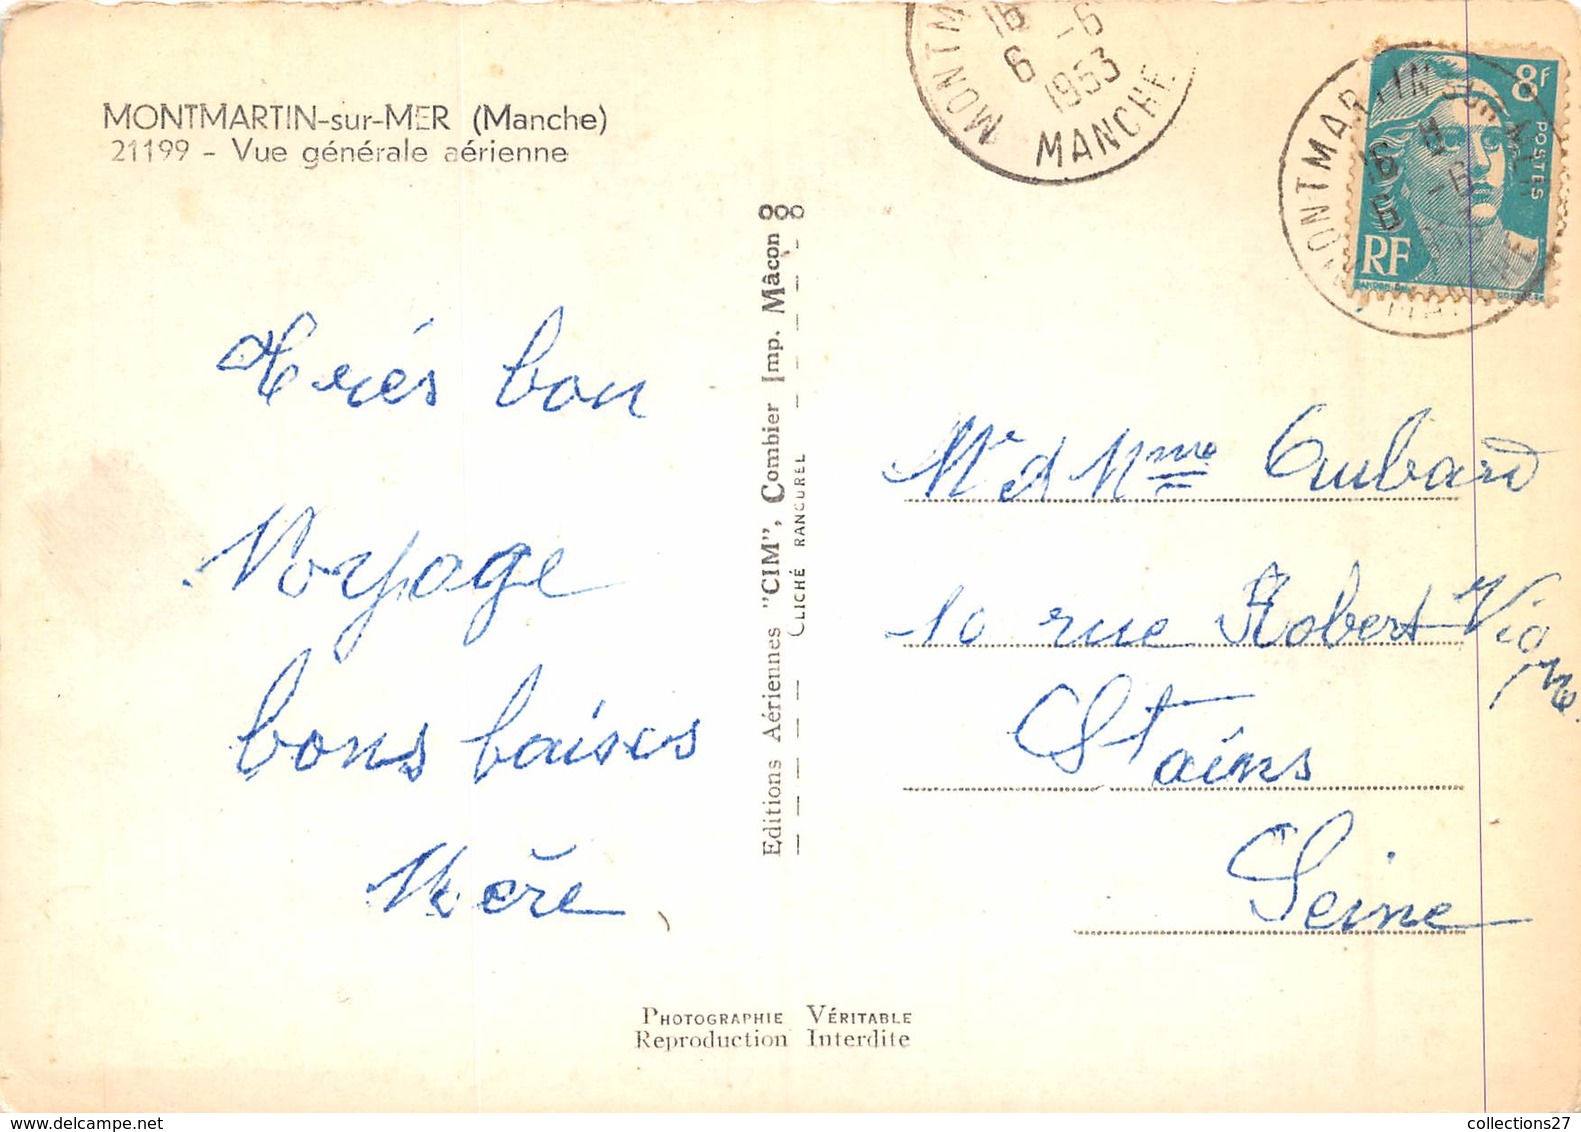 MONTMARTIN-sur-MER (Manche)
21199 - Vue générale aérienne
MONTM
16 -6
6 1953
MANCHE
MONTMARTIN SUR MER
16 -6
6
8F
POSTES
RF
Très bon
Voyage
bons baisers
Mère
Editions Aériennes "CIM", Combier Imp. Mâcon
CLICHÉ RANCUREL
Mr et Mme
10 rue Robert Vigne
Stains
Seine
PHOTOGRAPHIE VÉRITABLE
Reproduction Interdite
collections27